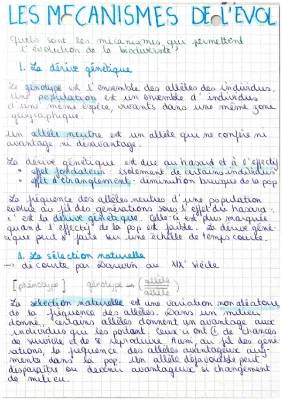 LES MECANISMES DE L'EVOL
Quels sont les mécanismes qui permettent
l'évolution de la biodiversité?
1. La dérive génétique
Le génotype est l'ensemble des allèles des individus.
Une population est un ensemble d'individus
d'une même espèce, vivants dans une même zone
géographique.
Un allèle neutre est un allèle qui ne confère ni
avantage ni désavantage.
La dérive génétique est due au hasard et à l'effectif
• effet fondateur: isolement de certains individus
• effet d'étranglement: diminution brusque de la pop
La fréquence des allèles neutres d'une population
évolue au fil des générations sous l'effet du hasard:
c'est la dérive génétique. Celle-ci est plus marquée
quand l'effectif de la pop est faible. La dérive géné-
tique peut se faire sur une échelle de temps courte.
2. La sélection naturelle
→ décrite par Darwin au XIXe siècle
[phénotype] génotype → (allèle
allèle)
La sélection naturelle est une variation non aléatoire
de la fréquence des allèles. Dans un milieu
donné, certains allèles donnent un avantage aux
individus qui les portent. Ceux-ci ont + de chances
de survivre et de se reproduire. Ainsi, au fil des géné-
rations, la fréquence des allèles avantageux aug-
mente dans la pop. Un allèle défavorable peut
disparaître ou devenir avantageux si changement
de milieu.